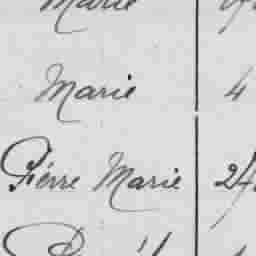 Marie
Marie 4
Pierre Marie 2f